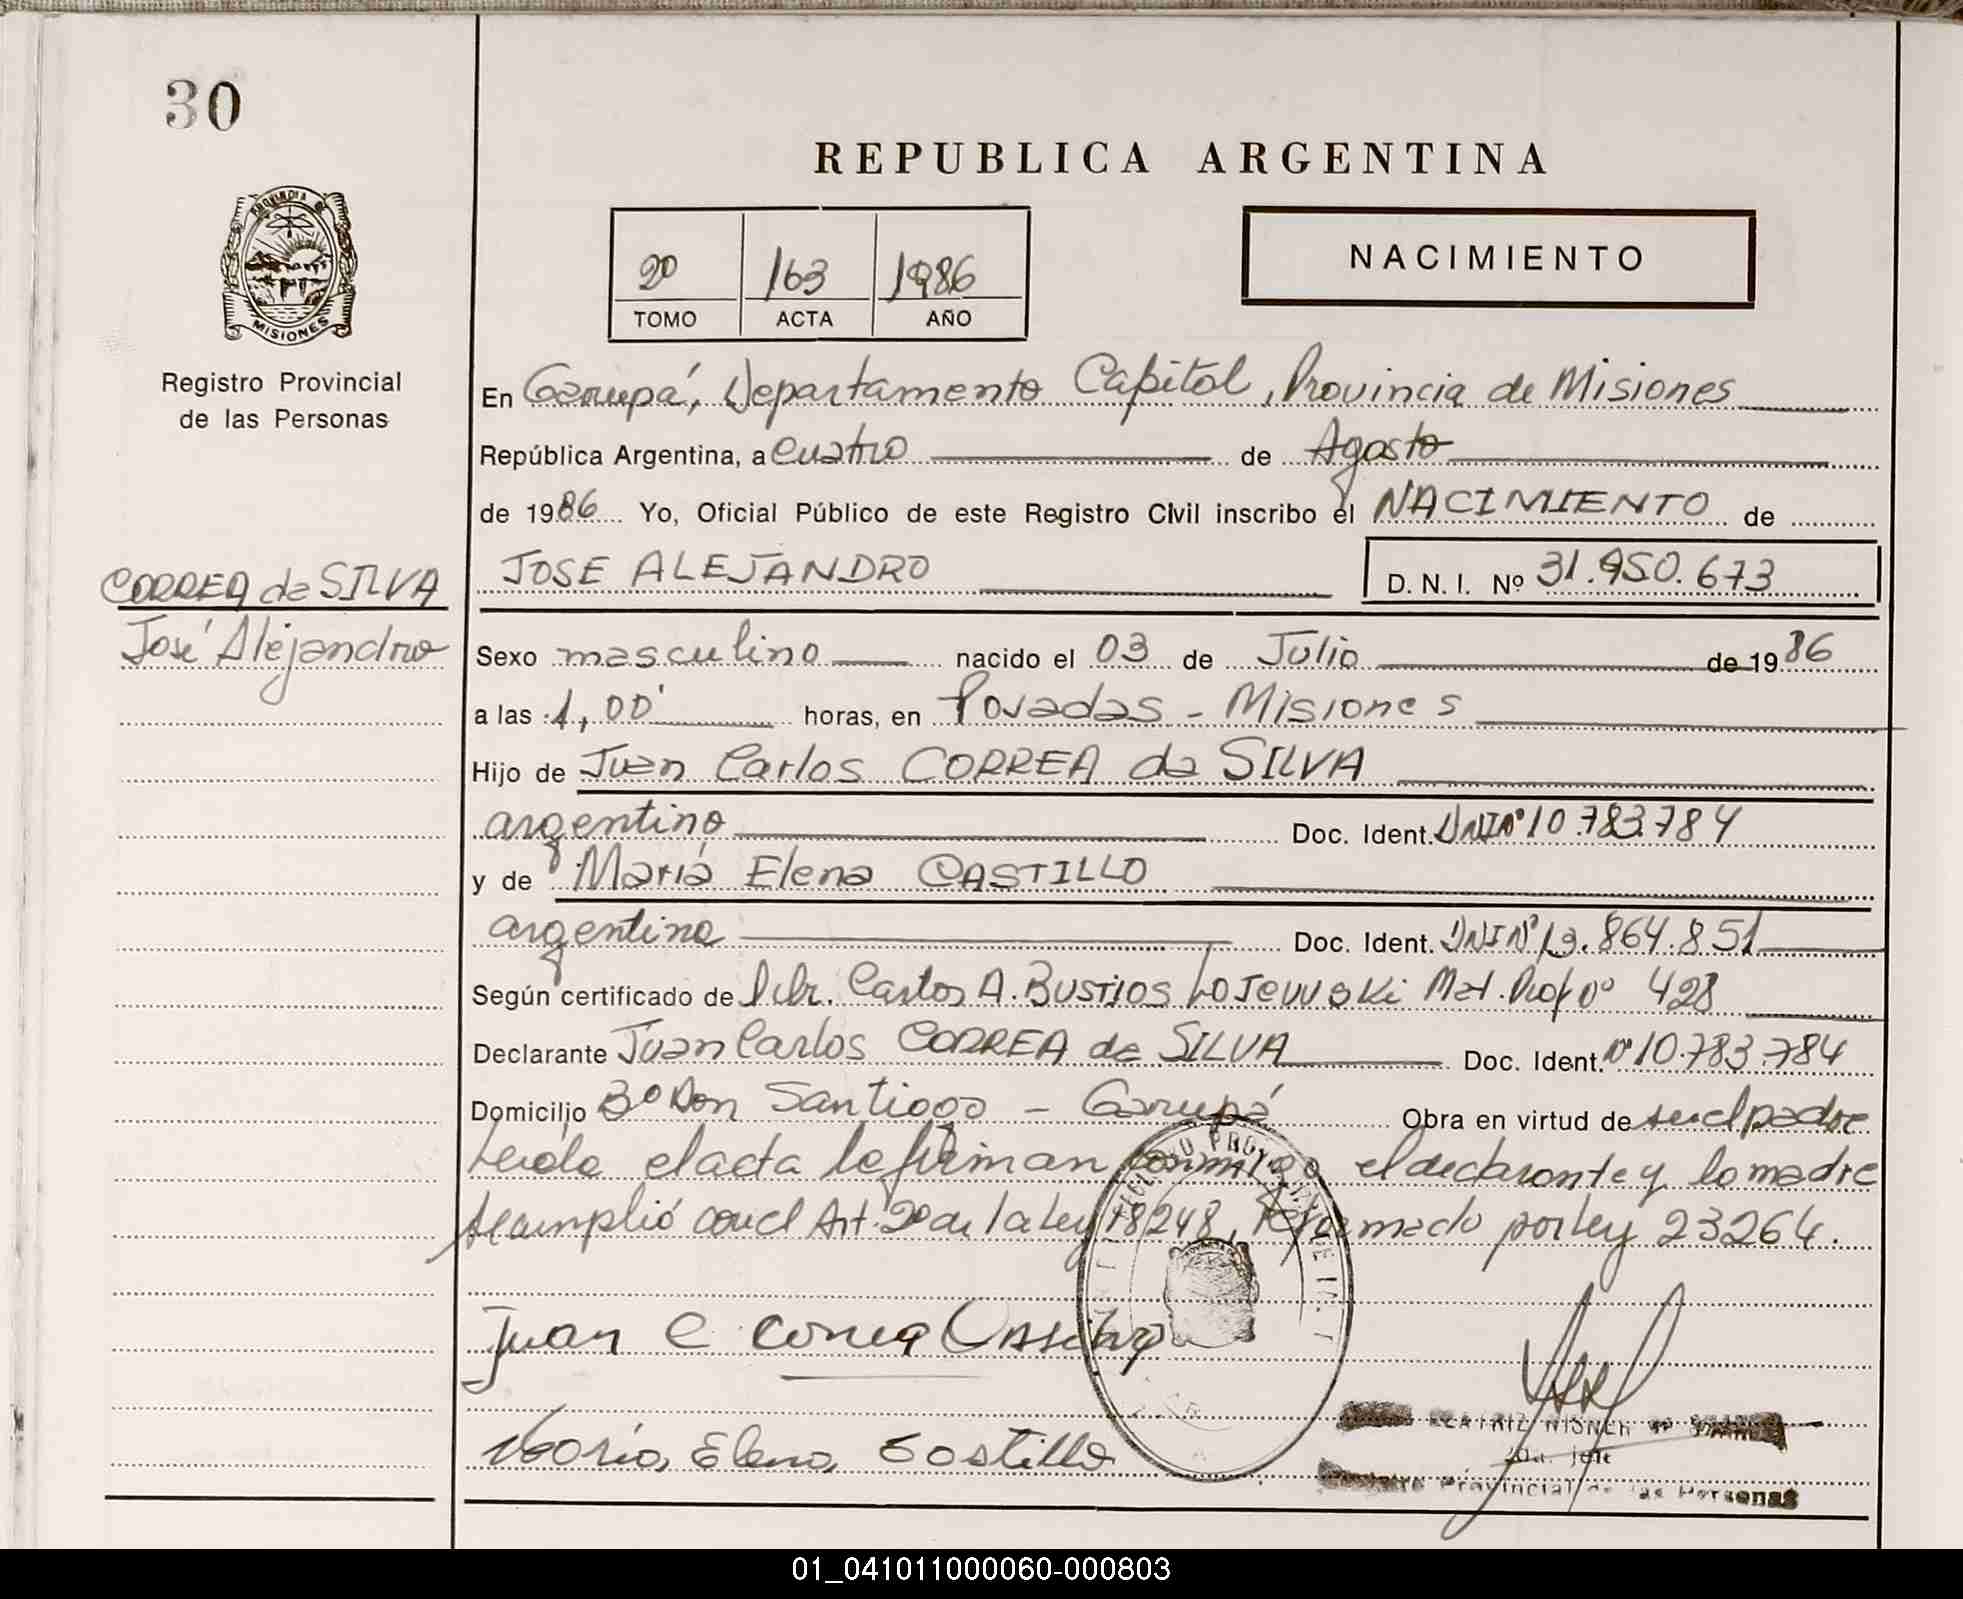 30
PROVINCIA DE
MISIONES
Registro Provincial
de las Personas
REPUBLICA ARGENTINA
2º 163 1986
TOMO ACTA AÑO
NACIMIENTO
En Garupá, Departamento Capital, Provincia de Misiones
República Argentina, a cuatro de Agosto
de 1986 Yo, Oficial Público de este Registro Civil inscribo el NACIMIENTO de
CORREA da SILVA
José Alejandro
JOSE ALEJANDRO D. N. I. Nº 31.950.673
Sexo masculino nacido el 03 de Julio de 1986
a las 1,00' horas, en Posadas - Misiones
Hijo de Juan Carlos CORREA da SILVA
argentino Doc. Ident. DNI Nº 10.783.784
y de María Elena CASTILLO
argentina Doc. Ident. DNI Nº 13.864.851
Según certificado de Carlos A. BUSTIOS Lojewski Mat. Prof Nº 428
Declarante Juan Carlos CORREA da SILVA Doc. Ident. Nº 10.783.784
Domicilio Bº Don Santiago - Garupá Obra en virtud de ser el padre
Leída el acta la firman conmigo el declarante y la madre
se cumplió con el Art. 2º de la Ley 18248, reformado por ley 23264.
Juan C Correa Dasilva
María Elena Castillo
BEATRIZ
Registro Provincial de las Personas
01_041011000060-000803